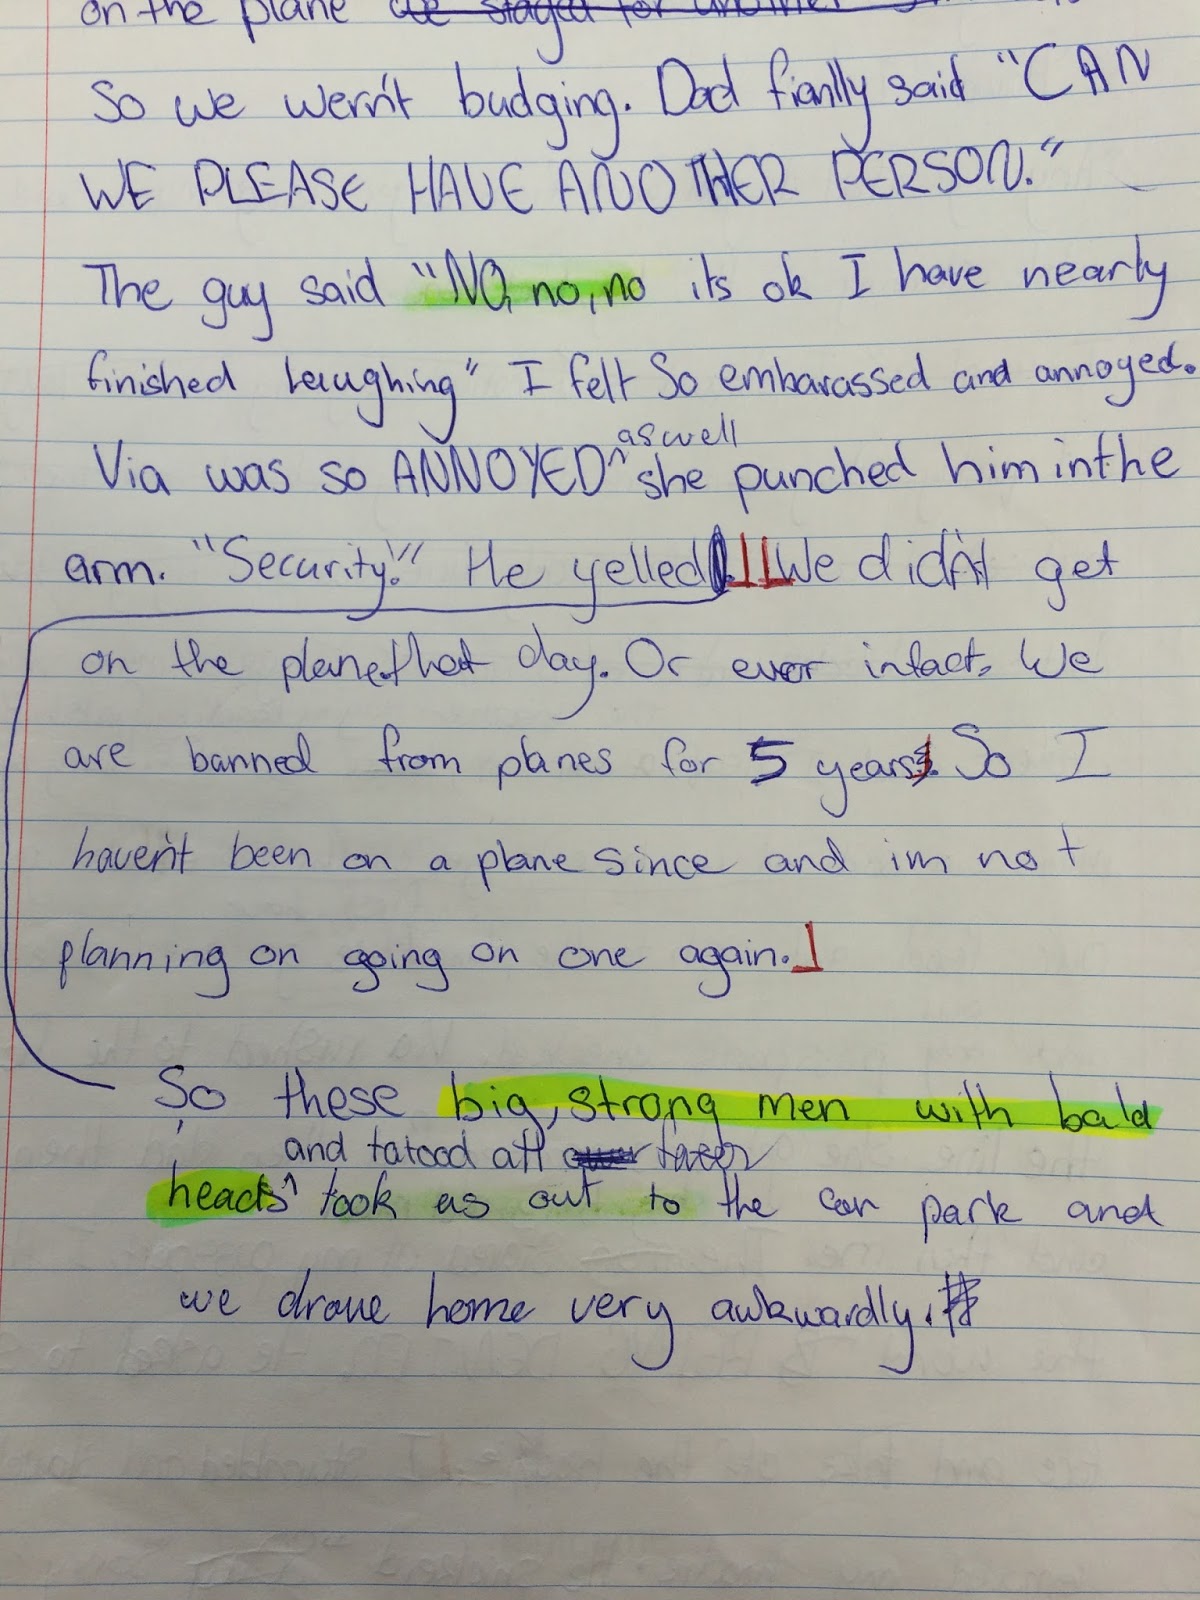 on the plane we stayed for another
So we wern't budging. Dad fianlly said "CAN
WE PLEASE HAVE ANOTHER PERSON."
The guy said "NO, no, no its ok I have nearly
finished laughing" I felt So embarassed and annoyed.
as well
Via was so ANNOYED ^ she punched him in the
arm. "Security!" He yelled. We didn't get
on the plane that day. Or ever infact. We
are banned from planes for 5 years. So I
haven't been on a plane since and im not
planning on going on one again.
So these big, strong men with bald
and tatood all over
heads ^ took us out to the car park and
we drove home very awkwardly.